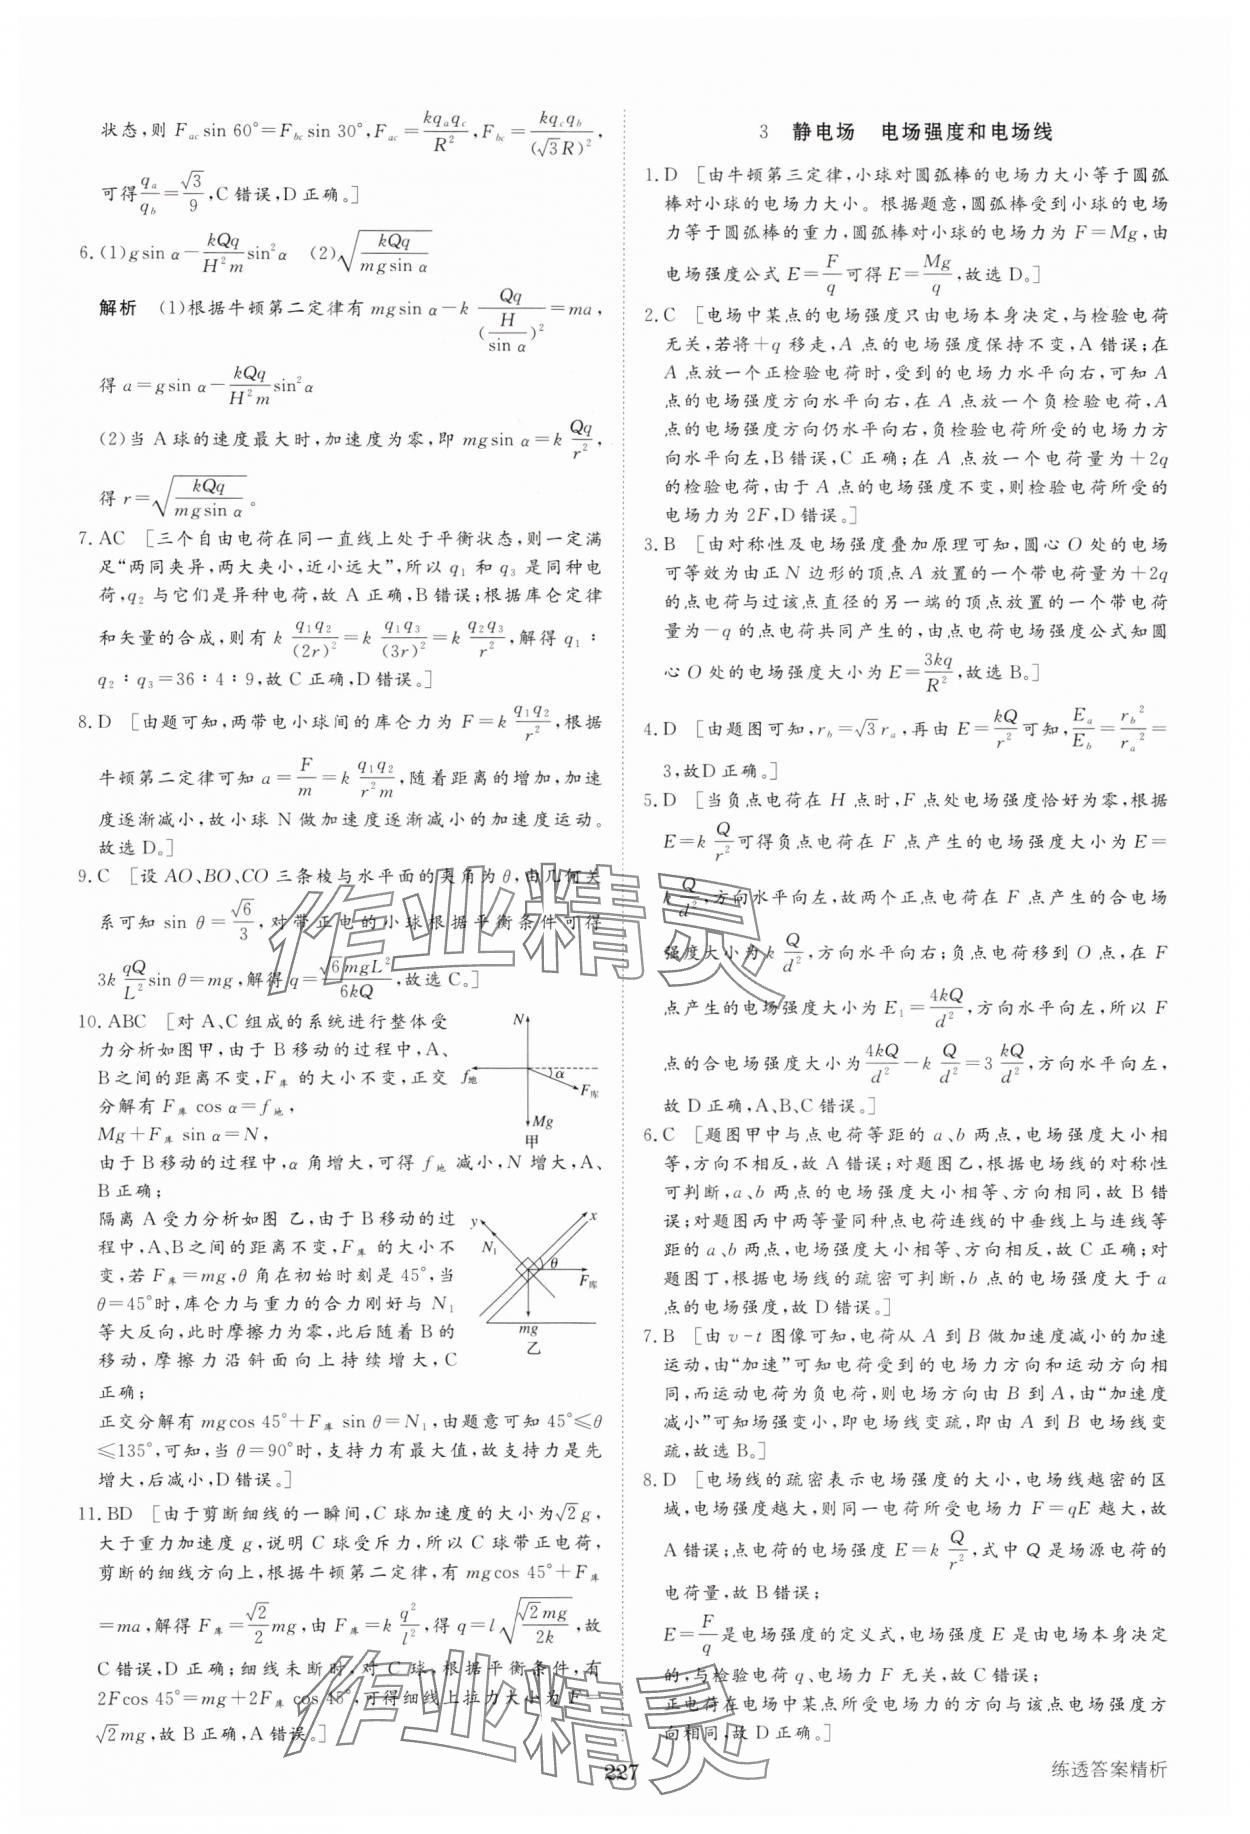 状态,则 F_ac sin 60°=F_bc sin 30°,F_ac=kq_aq_c/R²,F_bc=kq_cq_b/(√3R)²,
可得q_a/q_b=√3/9,C错误,D正确。]
6.(1)gsin α-kQq/H²m sin²α (2)√(kQq/mgsin α)
解析 (1)根据牛顿第二定律有 mgsin α-k Qq/(H/sin α)²=ma,
得 a=gsin α-kQq/H²m sin²α
(2)当 A 球的速度最大时,加速度为零,即 mgsin α=k Qq/r²,
得 r=√(kQq/mgsin α)。
7.AC [三个自由电荷在同一直线上处于平衡状态,则一定满
足“两同夹异,两大夹小,近小远大”,所以 q₁ 和 q₃ 是同种电
荷,q₂ 与它们是异种电荷,故 A 正确,B错误;根据库仑定律
和矢量的合成,则有 k q₁q₂/(2r)²=k q₁q₃/(3r)²=k q₂q₃/r²,解得 q₁∶
q₂∶q₃=36∶4∶9,故 C 正确,D错误。]
8.D [由题可知,两带电小球间的库仑力为 F=k q₁q₂/r²,根据
牛顿第二定律可知 a=F/m=k q₁q₂/r²m,随着距离的增加,加速
度逐渐减小,故小球 N 做加速度逐渐减小的加速度运动。
故选 D。]
9.C [设 AO、BO、CO 三条棱与水平面的夹角为 θ,由几何关
系可知 sin θ=√6/3,对带正电的小球根据平衡条件可得
3k qQ/L² sin θ=mg,解得 q=√6mgL²/6kQ,故选 C。]
10.ABC [对 A、C 组成的系统进行整体受
力分析如图甲,由于 B 移动的过程中,A、
B之间的距离不变,F库 的大小不变,正交
分解有 F库 cos α=f地,
Mg+F库 sin α=N,
N
f地
α
F库
Mg
甲
由于 B移动的过程中,α 角增大,可得 f地 减小,N 增大,A、
B正确;
隔离 A 受力分析如图 乙,由于 B移动的过
程中,A、B之间的距离不变,F库 的大小不
变,若 F库=mg,θ 角在初始时刻是 45°,当
θ=45°时,库仑力与重力的合力刚好与 N₁
等大反向,此时摩擦力为零,此后随着 B 的
移动,摩擦力沿斜面向上持续增大,C
正确;
y
x
N₁
θ
F库
mg
乙
正交分解有 mgcos 45°+F库 sin θ=N₁,由题意可知 45°≤θ
≤135°,可知,当 θ=90°时,支持力有最大值,故支持力是先
增大,后减小,D错误。]
11.BD [由于剪断细线的一瞬间,C 球加速度的大小为√2g,
大于重力加速度 g,说明 C 球受斥力,所以 C 球带正电荷,
剪断的细线方向上,根据牛顿第二定律,有 mgcos 45°+F库
=ma,解得 F库=√2/2 mg,由 F库=k q²/l²,得 q=l√(√2mg/2k),故
C错误,D正确;细线未断时,对 C 球,根据平衡条件,有
2Fcos 45°=mg+2F库cos 45°,可得细线上拉力大小为 F=
√2mg,故 B 正确,A错误。]
3 静电场 电场强度和电场线
1.D [由牛顿第三定律,小球对圆弧棒的电场力大小等于圆弧
棒对小球的电场力大小。根据题意,圆弧棒受到小球的电场
力等于圆弧棒的重力,圆弧棒对小球的电场力为 F=Mg,由
电场强度公式 E=F/q可得 E=Mg/q,故选 D。]
2.C [电场中某点的电场强度只由电场本身决定,与检验电荷
无关,若将+q 移走,A 点的电场强度保持不变,A 错误;在
A 点放一个正检验电荷时,受到的电场力水平向右,可知 A
点的电场强度方向水平向右,在 A 点放一个负检验电荷,A
点的电场强度方向仍水平向右,负检验电荷所受的电场力方
向水平向左,B错误,C正确;在 A 点放一个电荷量为+2q
的检验电荷,由于 A 点的电场强度不变,则检验电荷所受的
电场力为 2F,D错误。]
3.B [由对称性及电场强度叠加原理可知,圆心 O 处的电场
可等效为由正 N 边形的顶点 A 放置的一个带电荷量为+2q
的点电荷与过该点直径的另一端的顶点放置的一个带电荷
量为-q 的点电荷共同产生的,由点电荷电场强度公式知圆
心 O 处的电场强度大小为 E=3kq/R²,故选 B。]
4.D [由题图可知,r_b=√3r_a,再由 E=kQ/r²可知,E_a/E_b=r_b²/r_a²=
3,故D 正确。]
5.D [当负点电荷在 H 点时,F 点处电场强度恰好为零,根据
E=k Q/r²可得负点电荷在 F 点产生的电场强度大小为 E=
k Q/d²,方向水平向左,故两个正点电荷在 F 点产生的合电场
强度大小为 k Q/d²,方向水平向右;负点电荷移到 O 点,在 F
点产生的电场强度大小为 E₁=4kQ/d²,方向水平向左,所以 F
点的合电场强度大小为4kQ/d²-k Q/d²=3 kQ/d²,方向水平向左,
故 D 正确,A、B、C 错误。]
6.C [题图甲中与点电荷等距的 a、b 两点,电场强度大小相
等,方向不相反,故 A 错误;对题图乙,根据电场线的对称性
可判断,a、b 两点的电场强度大小相等、方向相同,故 B 错
误;对题图丙中两等量同种点电荷连线的中垂线上与连线等
距的 a、b 两点,电场强度大小相等、方向相反,故 C 正确;对
题图丁,根据电场线的疏密可判断,b 点的电场强度大于 a
点的电场强度,故 D 错误。]
7.B [由 v-t 图像可知,电荷从 A 到 B 做加速度减小的加速
运动,由“加速”可知电荷受到的电场力方向和运动方向相
同,而运动电荷为负电荷,则电场方向由 B 到 A,由“加速度
减小”可知场强变小,即电场线变疏,即由 A 到 B 电场线变
疏,故选 B。]
8.D [电场线的疏密表示电场强度的大小,电场线越密的区
域,电场强度越大,则同一电荷所受电场力 F=qE 越大,故
A 错误;点电荷的电场强度 E=k Q/r²,式中 Q 是场源电荷的
电荷量,故 B 错误;
E=F/q是电场强度的定义式,电场强度 E 是由电场本身决定
的,与检验电荷 q、电场力 F 无关,故 C 错误;
正电荷在电场中某点所受电场力的方向与该点电场强度方
向相同,故 D 正确。]
作业精灵
作业精灵
227
练透答案精析